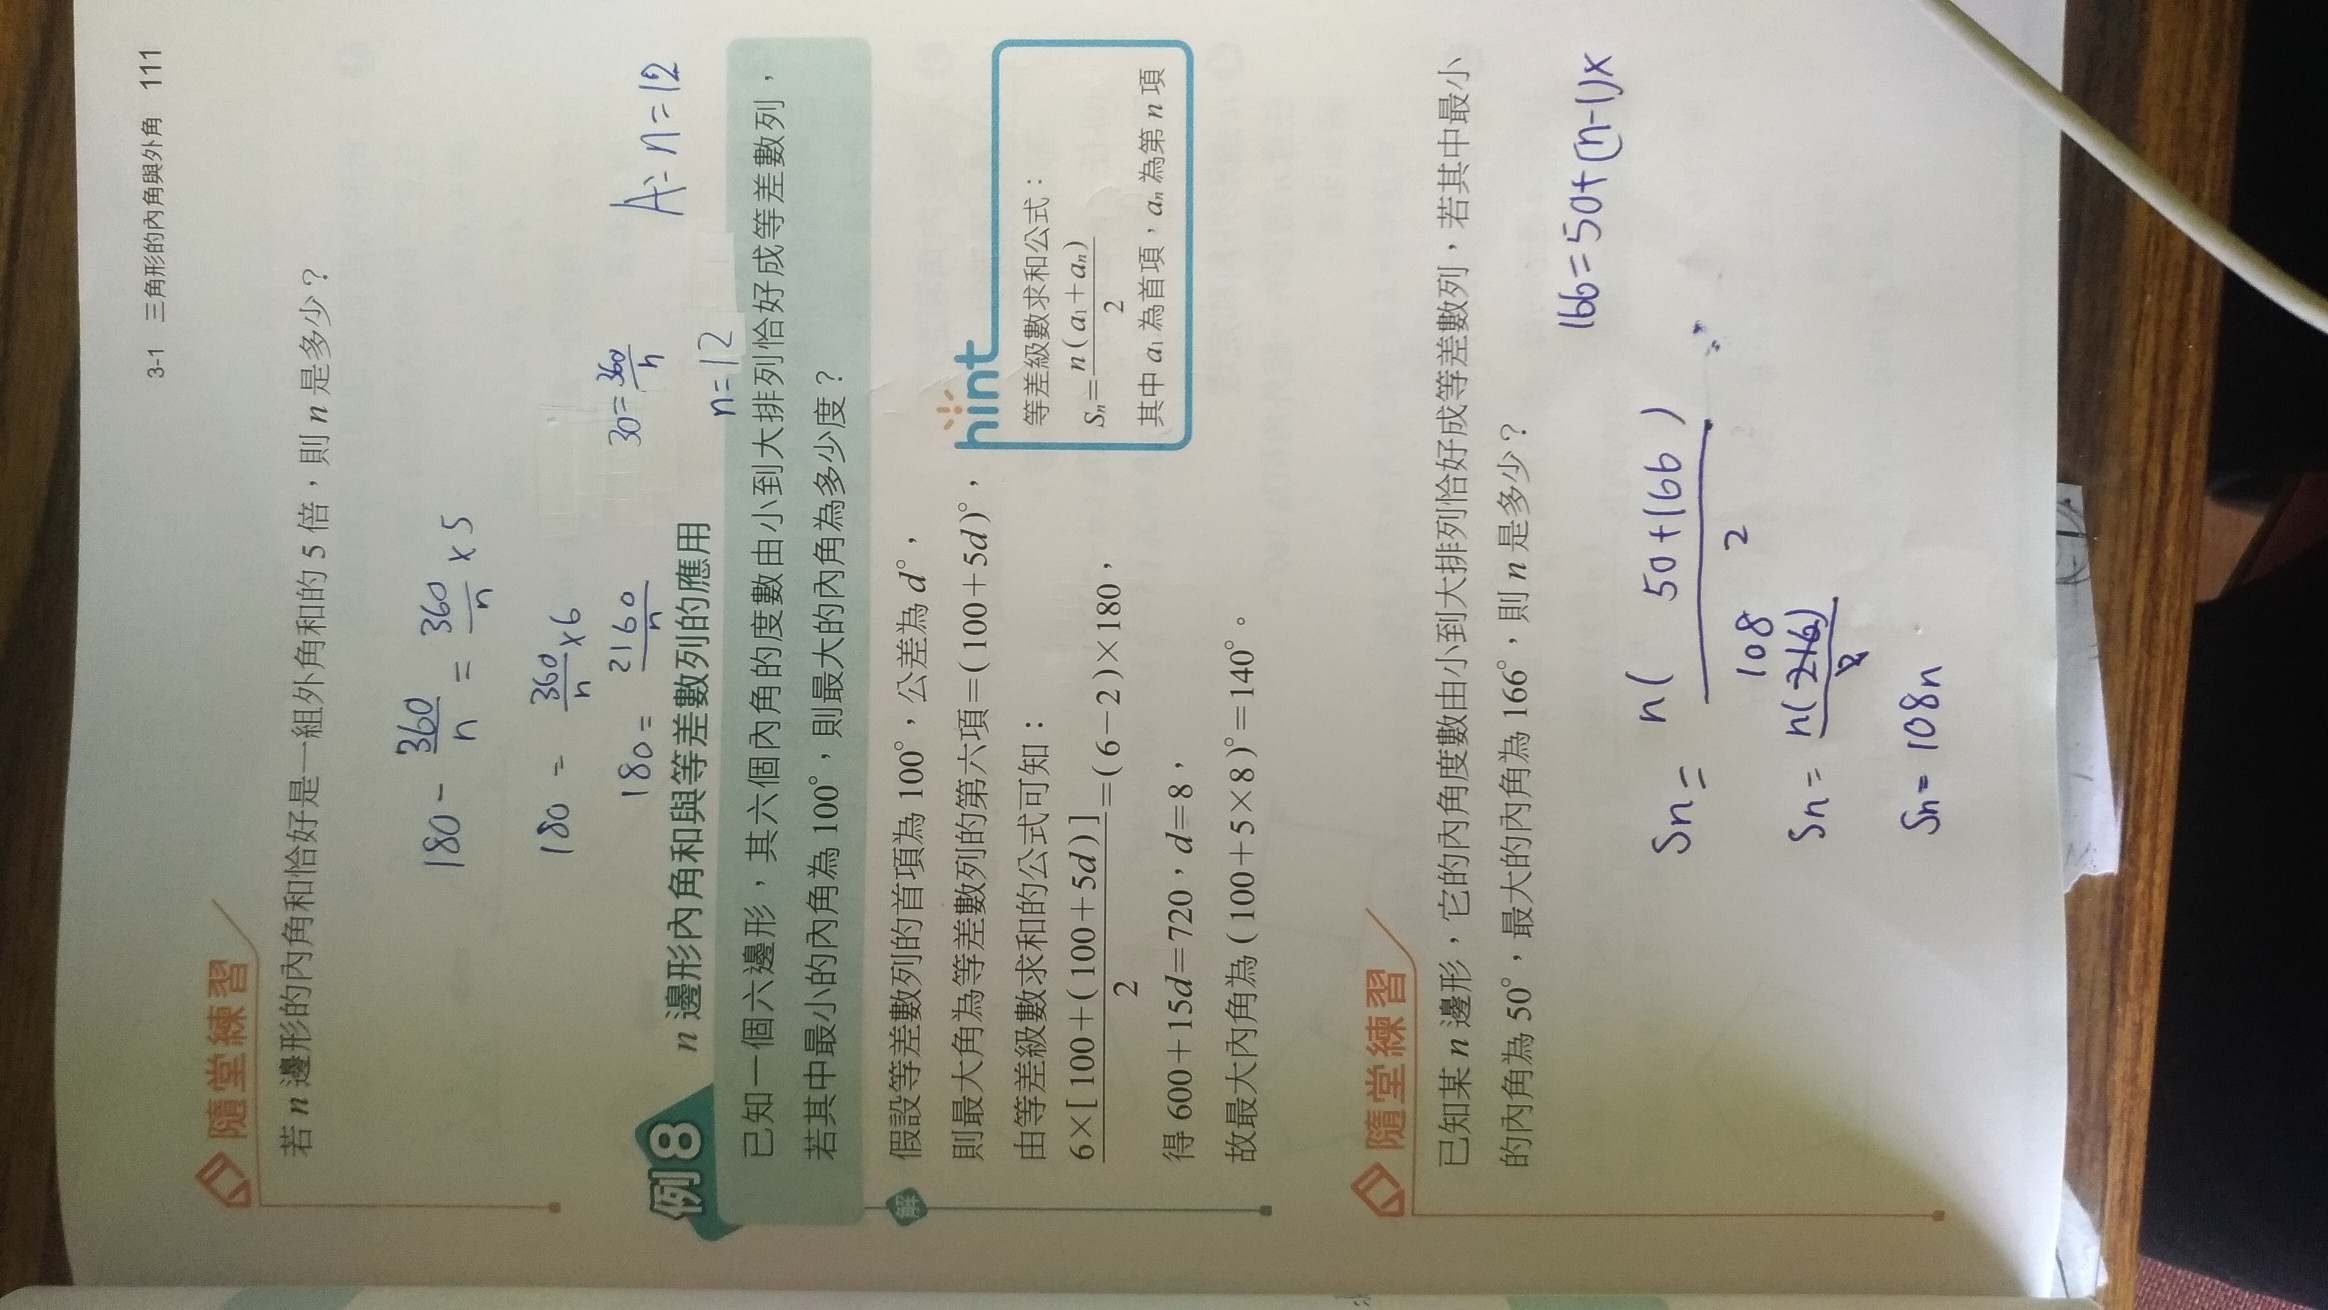 3-1 三角形的內角與外角 111
隨堂練習
若 n 邊形的內角和恰好是一組外角和的 5 倍，則 n 是多少？
180 - 360/n = 360/n × 5
180 = 360/n × 6
180 = 2160/n
30 = 360/n
n = 12
A: n = 12
例 8 n 邊形內角和與等差數列的應用
已知一個六邊形，其六個內角的度數由小到大排列恰好成等差數列，
若其中最小的內角為 100°，則最大的內角為多少度？
解
假設等差數列的首項為 100°，公差為 d°，
則最大角為等差數列的第六項＝( 100＋5d )°，
由等差級數求和的公式可知：
6×[ 100＋( 100＋5d ) ]/2＝( 6－2 )×180，
得 600＋15d＝720，d＝8，
故最大內角為 ( 100＋5×8 )°＝140°。
hint
等差級數求和公式：
Sn＝n ( a1＋an )/2
其中 a1 為首項，an 為第 n 項
隨堂練習
已知某 n 邊形，它的內角度數由小到大排列恰好成等差數列，若其中最小
的內角為 50°，最大的內角為 166°，則 n 是多少？
166 = 50 + (n-1)x
Sn = n( 50+166 )/2
108
Sn = n(216)/2
Sn = 108n